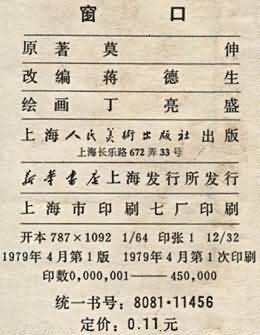 窗口
原著莫伸
改编蒋德生
绘画丁亮盛
上海人民美術出版社出版
上海长乐路672弄33号
新华書店上海发行所发行
上海市印刷七厂印刷
开本787×1092 1/64 印张1 12/32
1979年4月第1版 1979年4月第1次印刷
印数0,000,001——450,000
统一书号:8081·11456
定价:0.11元